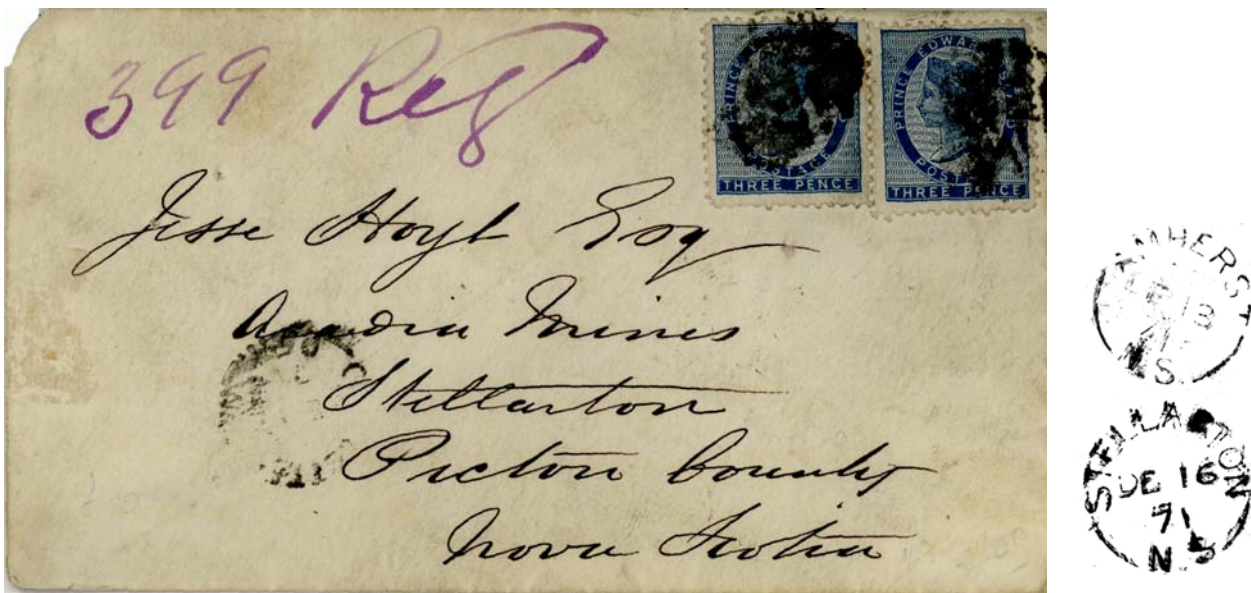 399 Reg
PRINCE EDWARD IS
POSTAGE
THREE PENCE
PRINCE EDWARD IS
POSTAGE
THREE PENCE
Jesse Hoyt Esq
Acadia Mines
Stellarton
Pictou County
Nova Scotia
AMHERST
13
S.
STELLARTON
DE 16
71
N.S